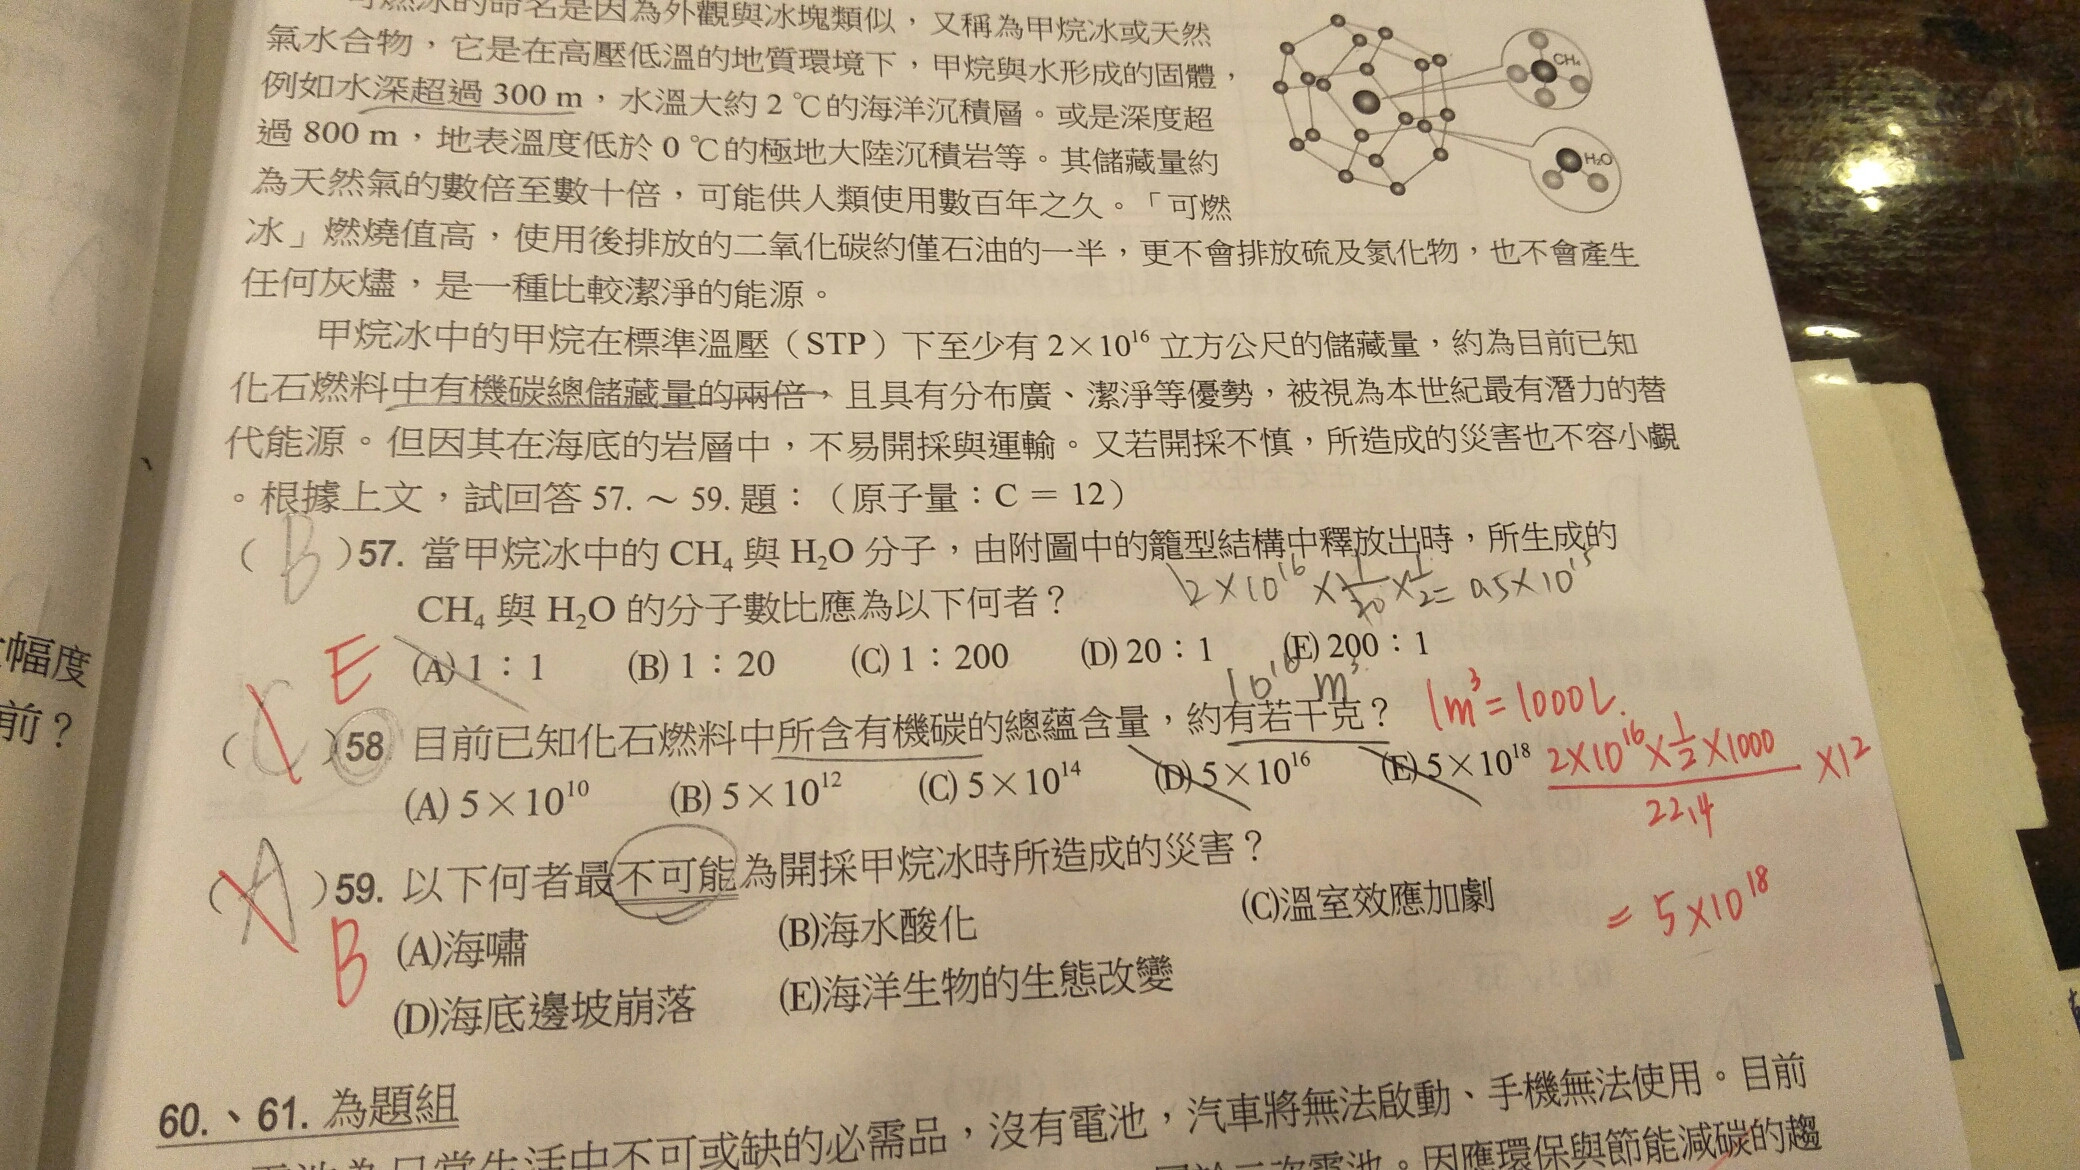 可燃冰的命名是因為外觀與冰塊類似，又稱為甲烷冰或天然
氣水合物，它是在高壓低溫的地質環境下，甲烷與水形成的固體，
例如水深超過 300 m，水溫大約 2 ℃的海洋沉積層。或是深度超
過 800 m，地表溫度低於 0 ℃的極地大陸沉積岩等。其儲藏量約
為天然氣的數倍至數十倍，可能供人類使用數百年之久。「可燃
冰」燃燒值高，使用後排放的二氧化碳約僅石油的一半，更不會排放硫及氮化物，也不會產生
任何灰燼，是一種比較潔淨的能源。
CH₄
H₂O
甲烷冰中的甲烷在標準溫壓（STP）下至少有 2×10¹⁶ 立方公尺的儲藏量，約為目前已知
化石燃料中有機碳總儲藏量的兩倍，且具有分布廣、潔淨等優勢，被視為本世紀最有潛力的替
代能源。但因其在海底的岩層中，不易開採與運輸。又若開採不慎，所造成的災害也不容小覷
。根據上文，試回答 57. ～ 59. 題：（原子量：C = 12）
( B )57. 當甲烷冰中的 CH₄ 與 H₂O 分子，由附圖中的籠型結構中釋放出時，所生成的
CH₄ 與 H₂O 的分子數比應為以下何者？
(A) 1：1 (B) 1：20 (C) 1：200 (D) 20：1 (E) 200：1
10¹⁶ m³
E
( C )58 目前已知化石燃料中所含有機碳的總蘊含量，約有若干克？
1m³=1000L.
(A) 5×10¹⁰ (B) 5×10¹² (C) 5×10¹⁴ (D) 5×10¹⁶ (E) 5×10¹⁸
2×10¹⁶×1/2×1000
22.4
×12
= 5×10¹⁸
( A )59. 以下何者最不可能為開採甲烷冰時所造成的災害？
B
(A)海嘯 (B)海水酸化 (C)溫室效應加劇
(D)海底邊坡崩落 (E)海洋生物的生態改變
60.、61. 為題組
幅度
前？
電池為日常生活中不可或缺的必需品，沒有電池，汽車將無法啟動、手機無法使用。目前
二次電池。因應環保與節能減碳的趨